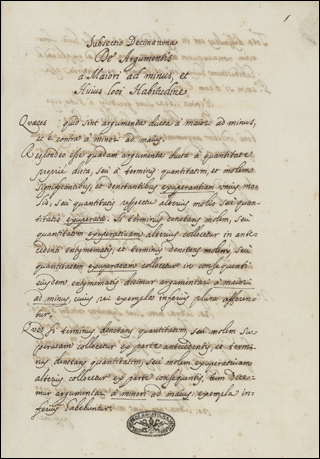 1
Subsectio Decimanona
De Argumentis
a Maiori ad minus, et
Huius loci Habitudine
Quæres quid sint argumenta ducta à maior ad minus,
et è contra à minor ad maius.
Respondeo esse quædam argumenta ducta à quantitate
propriè dicta, seu à terminis quantitatem, et molem
significantibus, et denotantibus exuperantiam unius mo-
lis, seu quantitatis respectu alterius molis seu quan-
titatis exuperatæ. Si terminus denotans molem, seu
quantitatem exuperantem alterius collocetur in ante-
cedenti enthymematis, et terminus denotans molem, seu
quantitatem exuperatam collocetur in consequenti
eiusdem enthymematis dicimur argumentari à maiori
ad minus, cuius rei exempla inferius plura afferen-
tur.
Quod si terminus denotans quantitatem, seu molem ex-
uperatam collocetur ex parte antecedentis, et termi-
nus denotans quantitatem, seu molem exuperantem
alterius collocetur ex parte consequentis, tum dice-
mur argumentari à minori ad maius. exempla in-
ferius habebuntur.